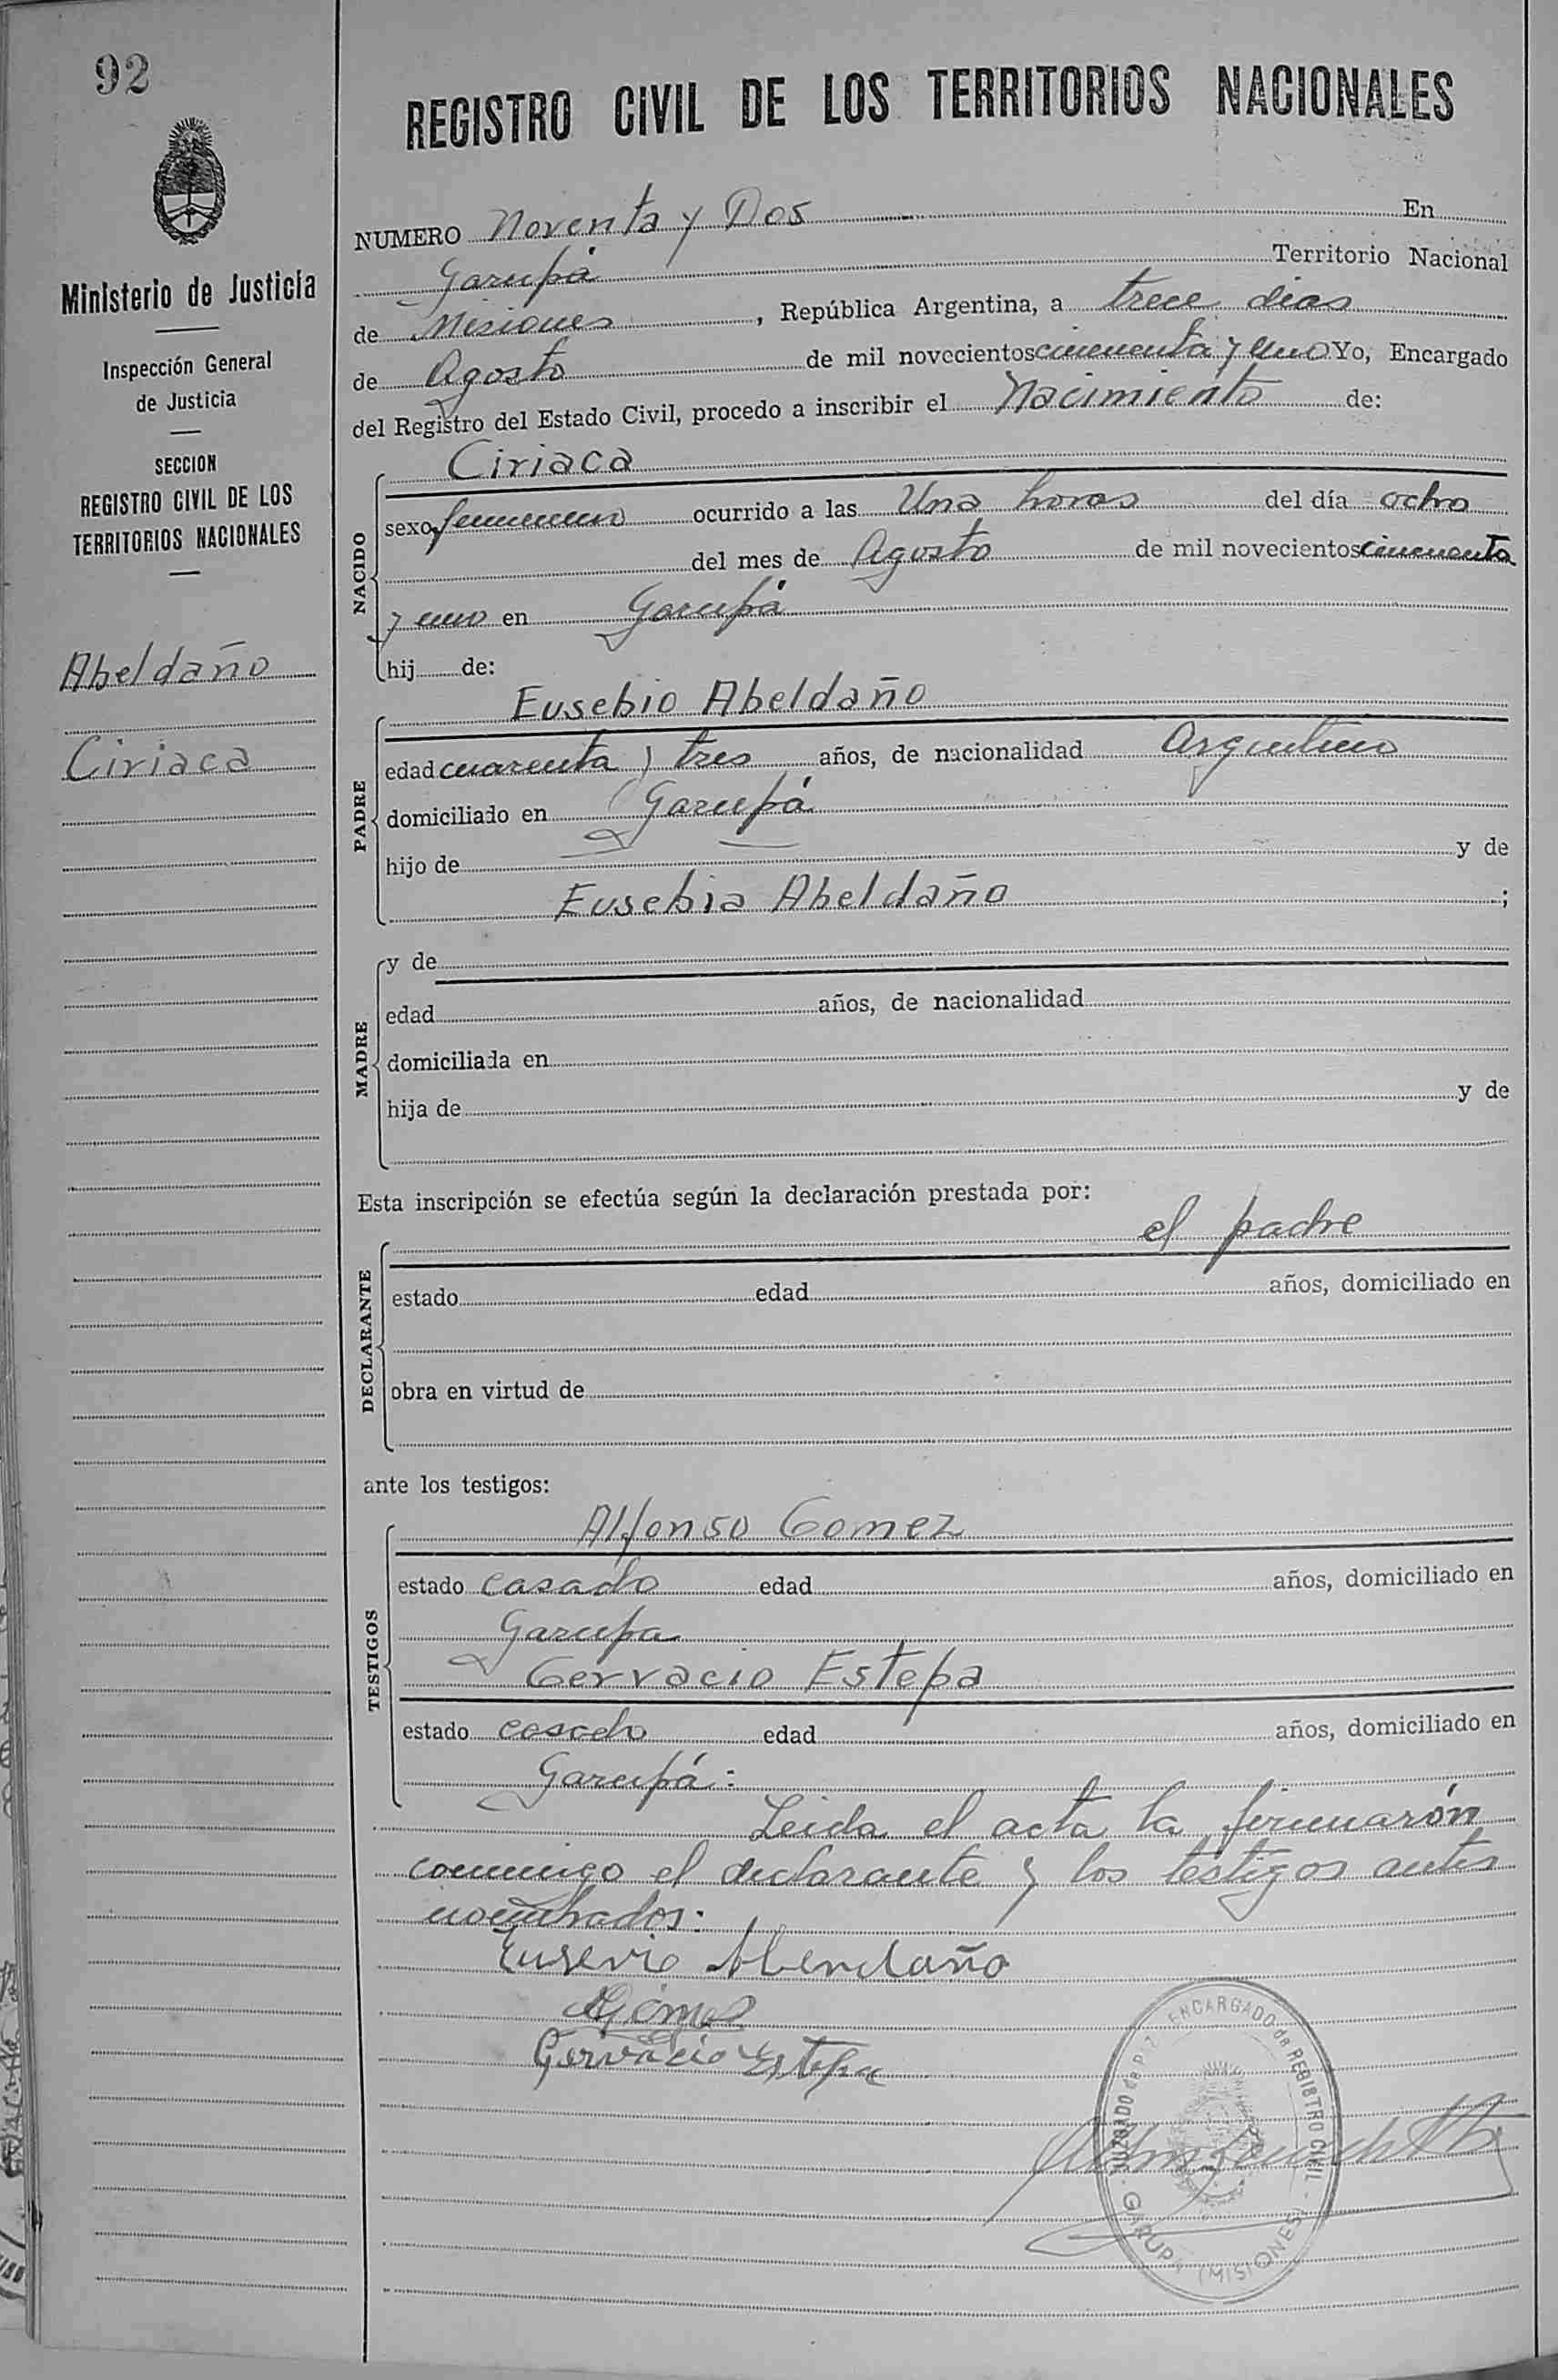 92
REGISTRO CIVIL DE LOS TERRITORIOS NACIONALES
Ministerio de Justicia
Inspección General
de Justicia
SECCION
REGISTRO CIVIL DE LOS
TERRITORIOS NACIONALES
Abeldaño
Ciriaca
NUMERO Noventa y Dos En
Garupá Territorio Nacional
de Misiones, República Argentina, a trece dias
de Agosto de mil novecientos cincuenta y uno Yo, Encargado
del Registro del Estado Civil, procedo a inscribir el Nacimiento de:
NACIDO
Ciriaca
sexo femenino ocurrido a las Una horas del día ocho
del mes de Agosto de mil novecientos cincuenta
y uno en Garupá
hij de:
PADRE
Eusebio Abeldaño
edad cuarenta y tres años, de nacionalidad Argentino
domiciliado en Garupá
hijo de y de
Eusebia Abeldaño ;
MADRE
y de
edad años, de nacionalidad
domiciliada en
hija de y de
Esta inscripción se efectúa según la declaración prestada por:
DECLARANTE
el padre
estado edad años, domiciliado en
obra en virtud de
ante los testigos:
TESTIGOS
Alfonso Gomez
estado casado edad años, domiciliado en
Garupa
Gervacio Estepa
estado casado edad años, domiciliado en
Garupá:
Leida el acta la firmarón
conmigo el declarante y los testigos antes
nombrados:
Eusevio Abendaño
AGómez
Gervacio Estepa
JUZGADO de PAZ ENCARGADO de REGISTRO CIVIL
GARUPA (MISIONES)